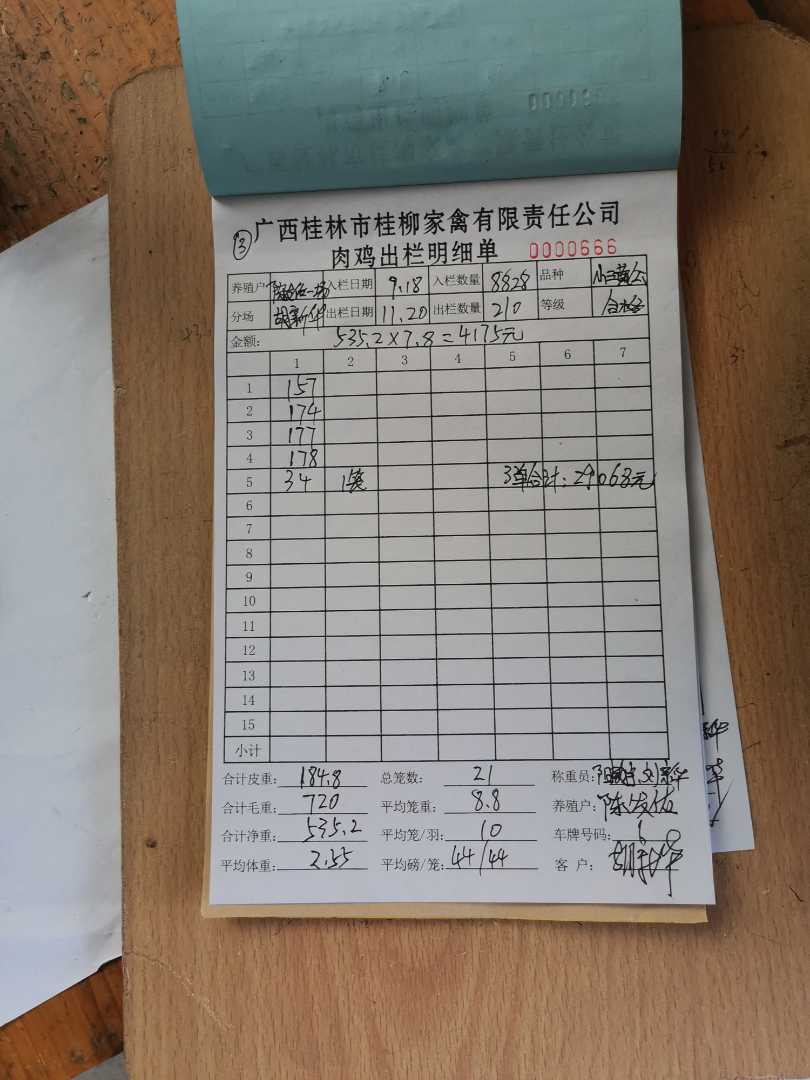 ③ 广西桂林市桂柳家禽有限责任公司
肉鸡出栏明细单 0000666
养殖户 入栏日期 9.18 入栏数量 8828 品种
分场 胡新华 出栏日期 11.20 出栏数量 210 等级
金额: 535.2×7.8=4175元
1 2 3 4 5 6 7
1 157
2 174
3 177
4 178
5 34 1笼 3单合计:29068元
6
7
8
9
10
11
12
13
14
15
小计
合计皮重: 184.8 总笼数: 21 称重员:
合计毛重: 720 平均笼重: 8.8 养殖户: 陈发佑
合计净重: 535.2 平均笼/羽: 10 车牌号码:
平均体重: 2.55 平均磅/笼: 44/44 客 户: 胡新华